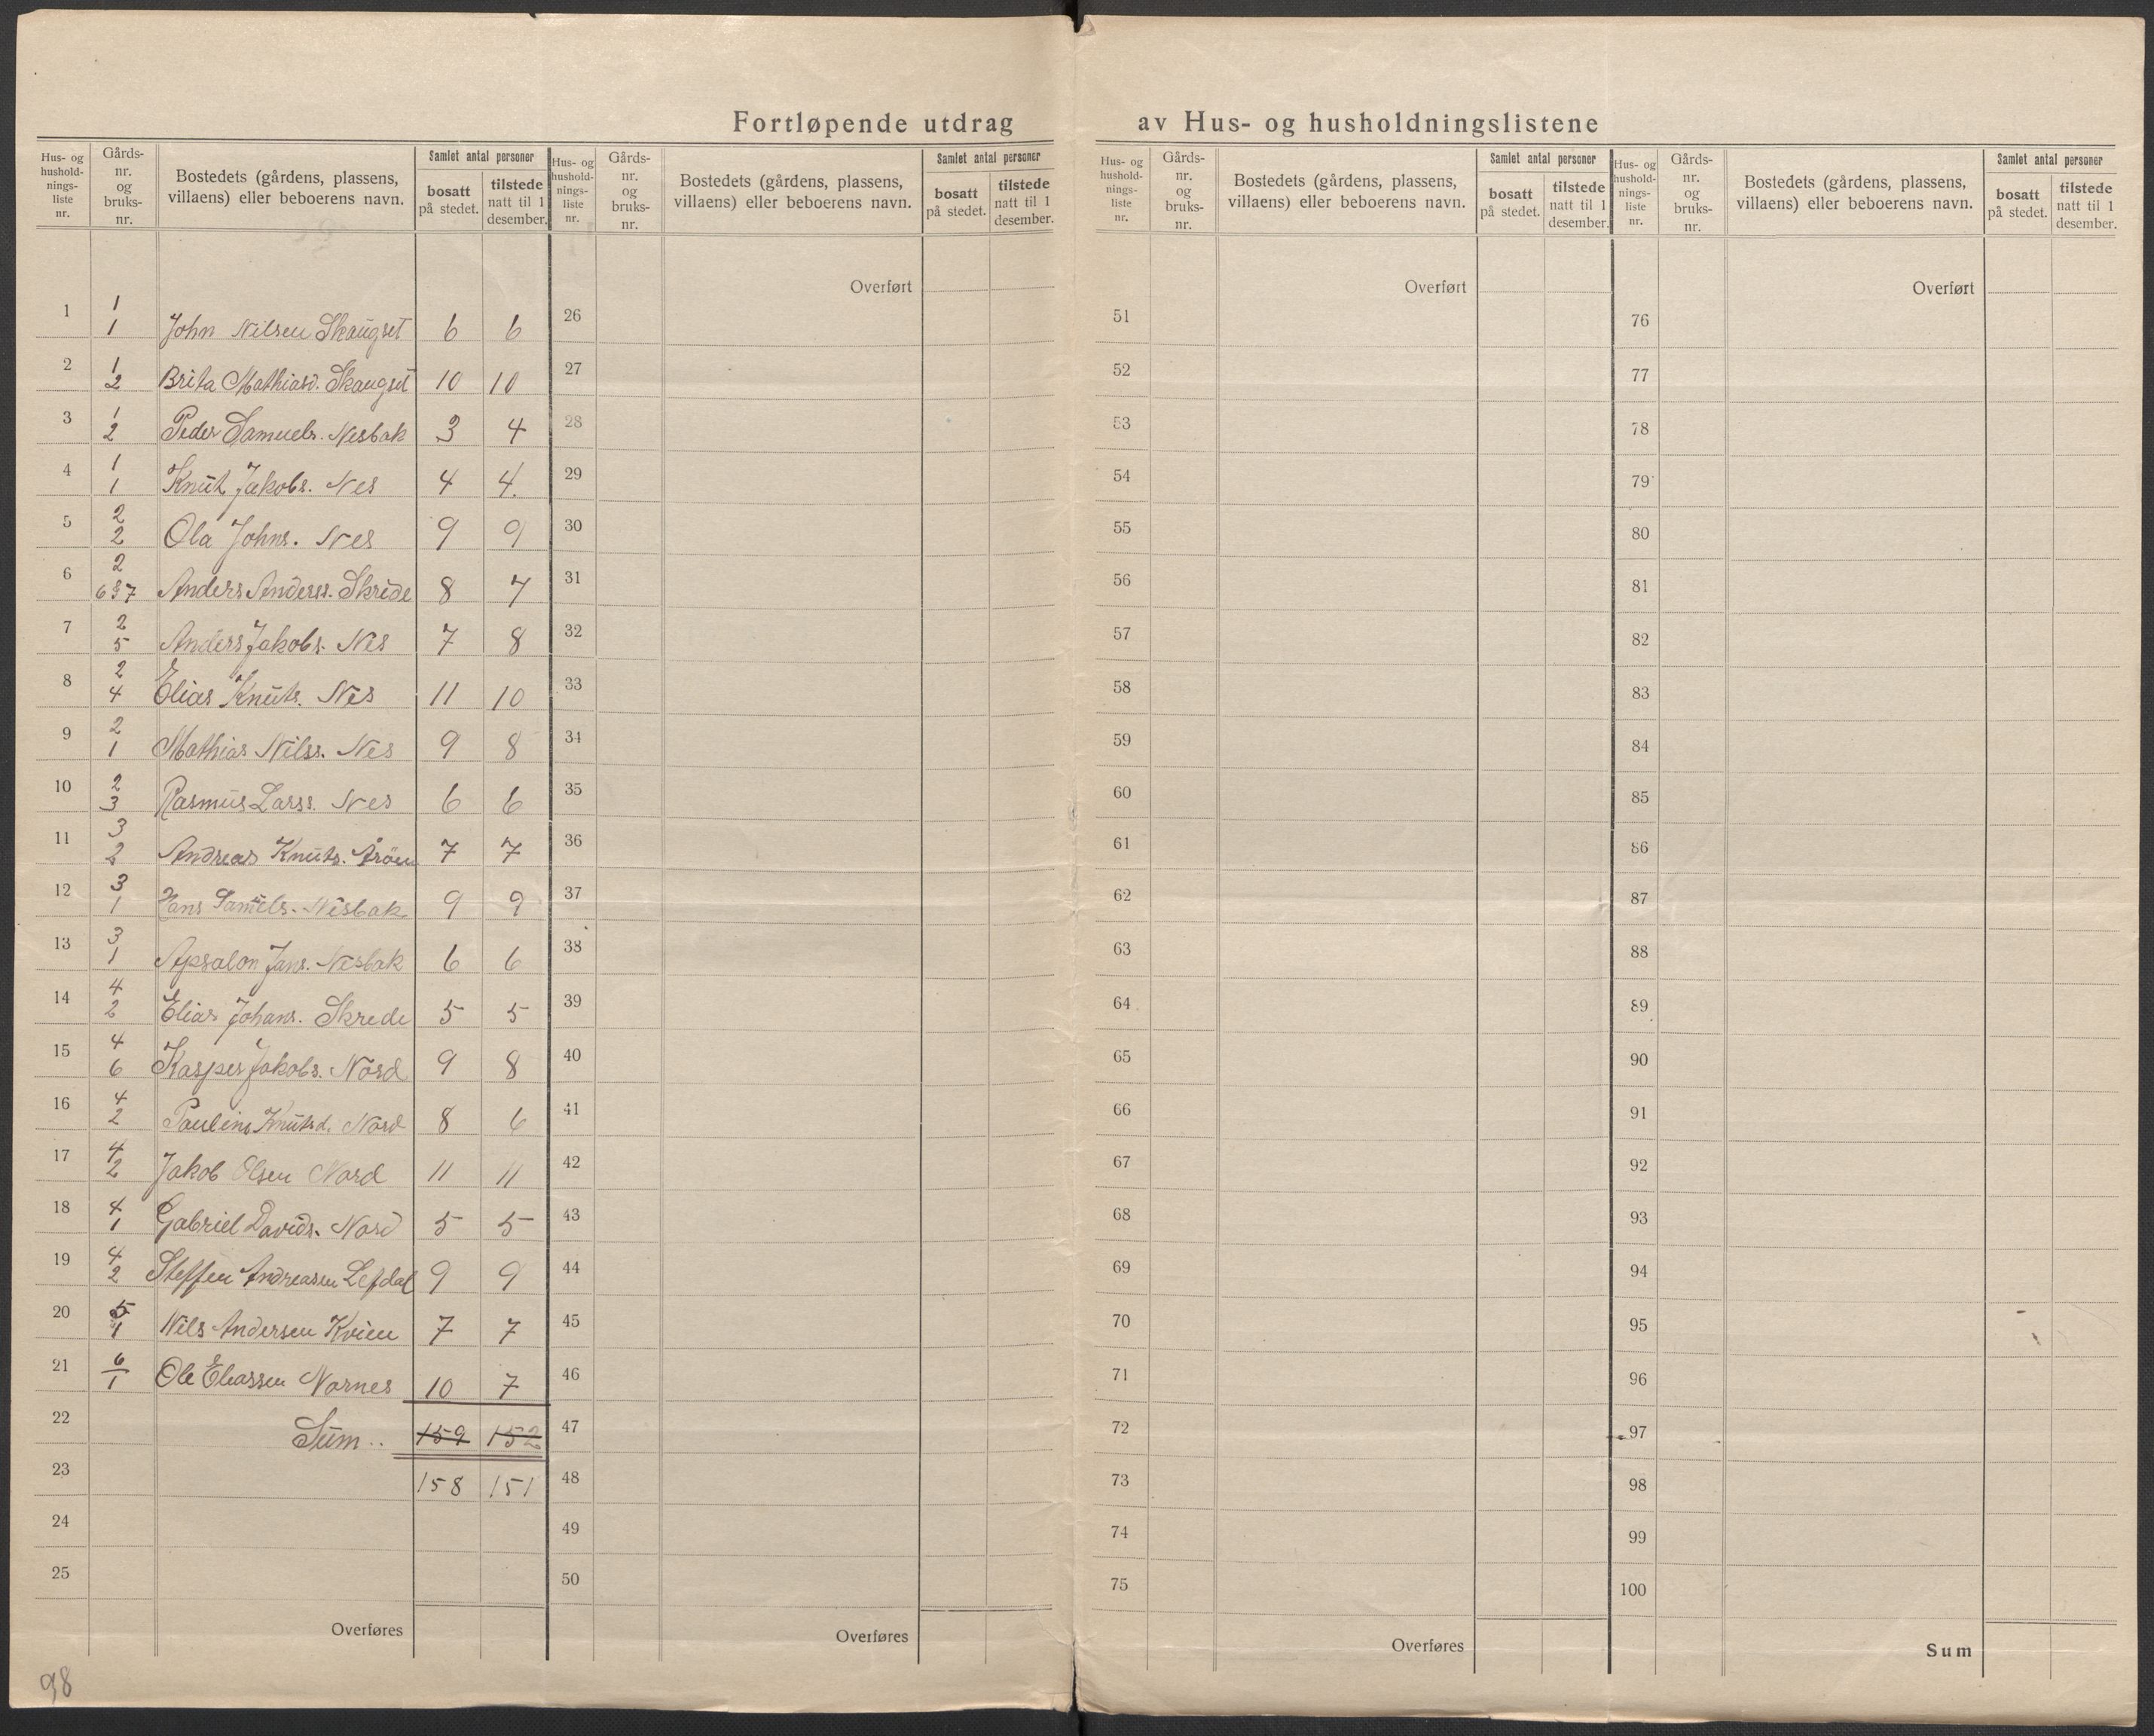 Fortløpende utdrag av Hus- og husholdningslistene
Hus- og husholdnings-liste nr. | Gårds-nr. og bruks-nr. | Bostedets (gårdens, plassens, villaens) eller beboerens navn. | Samlet antal personer | bosatt på stedet. | tilstede natt til 1 desember.
Hus- og hushold-nings-liste nr. | Gårds-nr. og bruks-nr. | Bostedets (gårdens, plassens, villaens) eller beboerens navn. | Samlet antal personer | bosatt på stedet. | tilstede natt til 1 desember.
Hus- og hushold-nings-liste nr. | Gårds-nr. og bruks-nr. | Bostedets (gårdens, plassens, villaens) eller beboerens navn. | Samlet antal personer | bosatt på stedet. | tilstede natt til 1 desember.
Hus- og hushold-nings-liste nr. | Gårds-nr. og bruks-nr. | Bostedets (gårdens, plassens, villaens) eller beboerens navn. | Samlet antal personer | bosatt på stedet. | tilstede natt til 1 desember.
Overført Overført Overført
1 1/1 John Nilsen Skaugset 6 6 26 51 76
2 1/2 Brita Mathiasd. Skaugset 10 10 27 52 77
3 1/2 Peder Samuels. Nesbak 3 4 28 53 78
4 1/1 Knut Jakobs. Nes 4 4. 29 54 79
5 2/2 Ola Johns. Nes 9 9 30 55 80
6 2/6&7 Anders Anderss. Skrede 8 7 31 56 81
7 2/5 Anders Jakobs. Nes 7 8 32 57 82
8 2/4 Elias Knuts. Nes 11 10 33 58 83
9 2/1 Mathias Nilss. Nes 9 8 34 59 84
10 2/3 Rasmus Larss. Nes 6 6 35 60 85
11 3/2 Andreas Knuts. 7 7 36 61 86
12 3/1 Hans Samuels. Nesbak 9 9 37 62 87
13 3/1 Apsalon Jans. Nesbak 6 6 38 63 88
14 4/2 Elias Johans. Skrede 5 5 39 64 89
15 4/6 Kasper Jakobs. Nord 9 8 40 65 90
16 4/2 Pauline Knutsd. Nord 8 6 41 66 91
17 4/2 Jakob Olsen Nord 11 11 42 67 92
18 4/1 Gabriel Davids. Nord 5 5 43 68 93
19 4/2 Steffen Andreasen Lefdal 9 9 44 69 94
20 5/1 Nils Andersen Kvien 7 7 45 70 95
21 6/1 Ole Eliassen Nornes 10 7 46 71 96
22 Sum.. 159 152 47 72 97
23 158 151 48 73 98
24 49 74 99
25 50 75 100
Overføres Overføres Overføres Sum
98